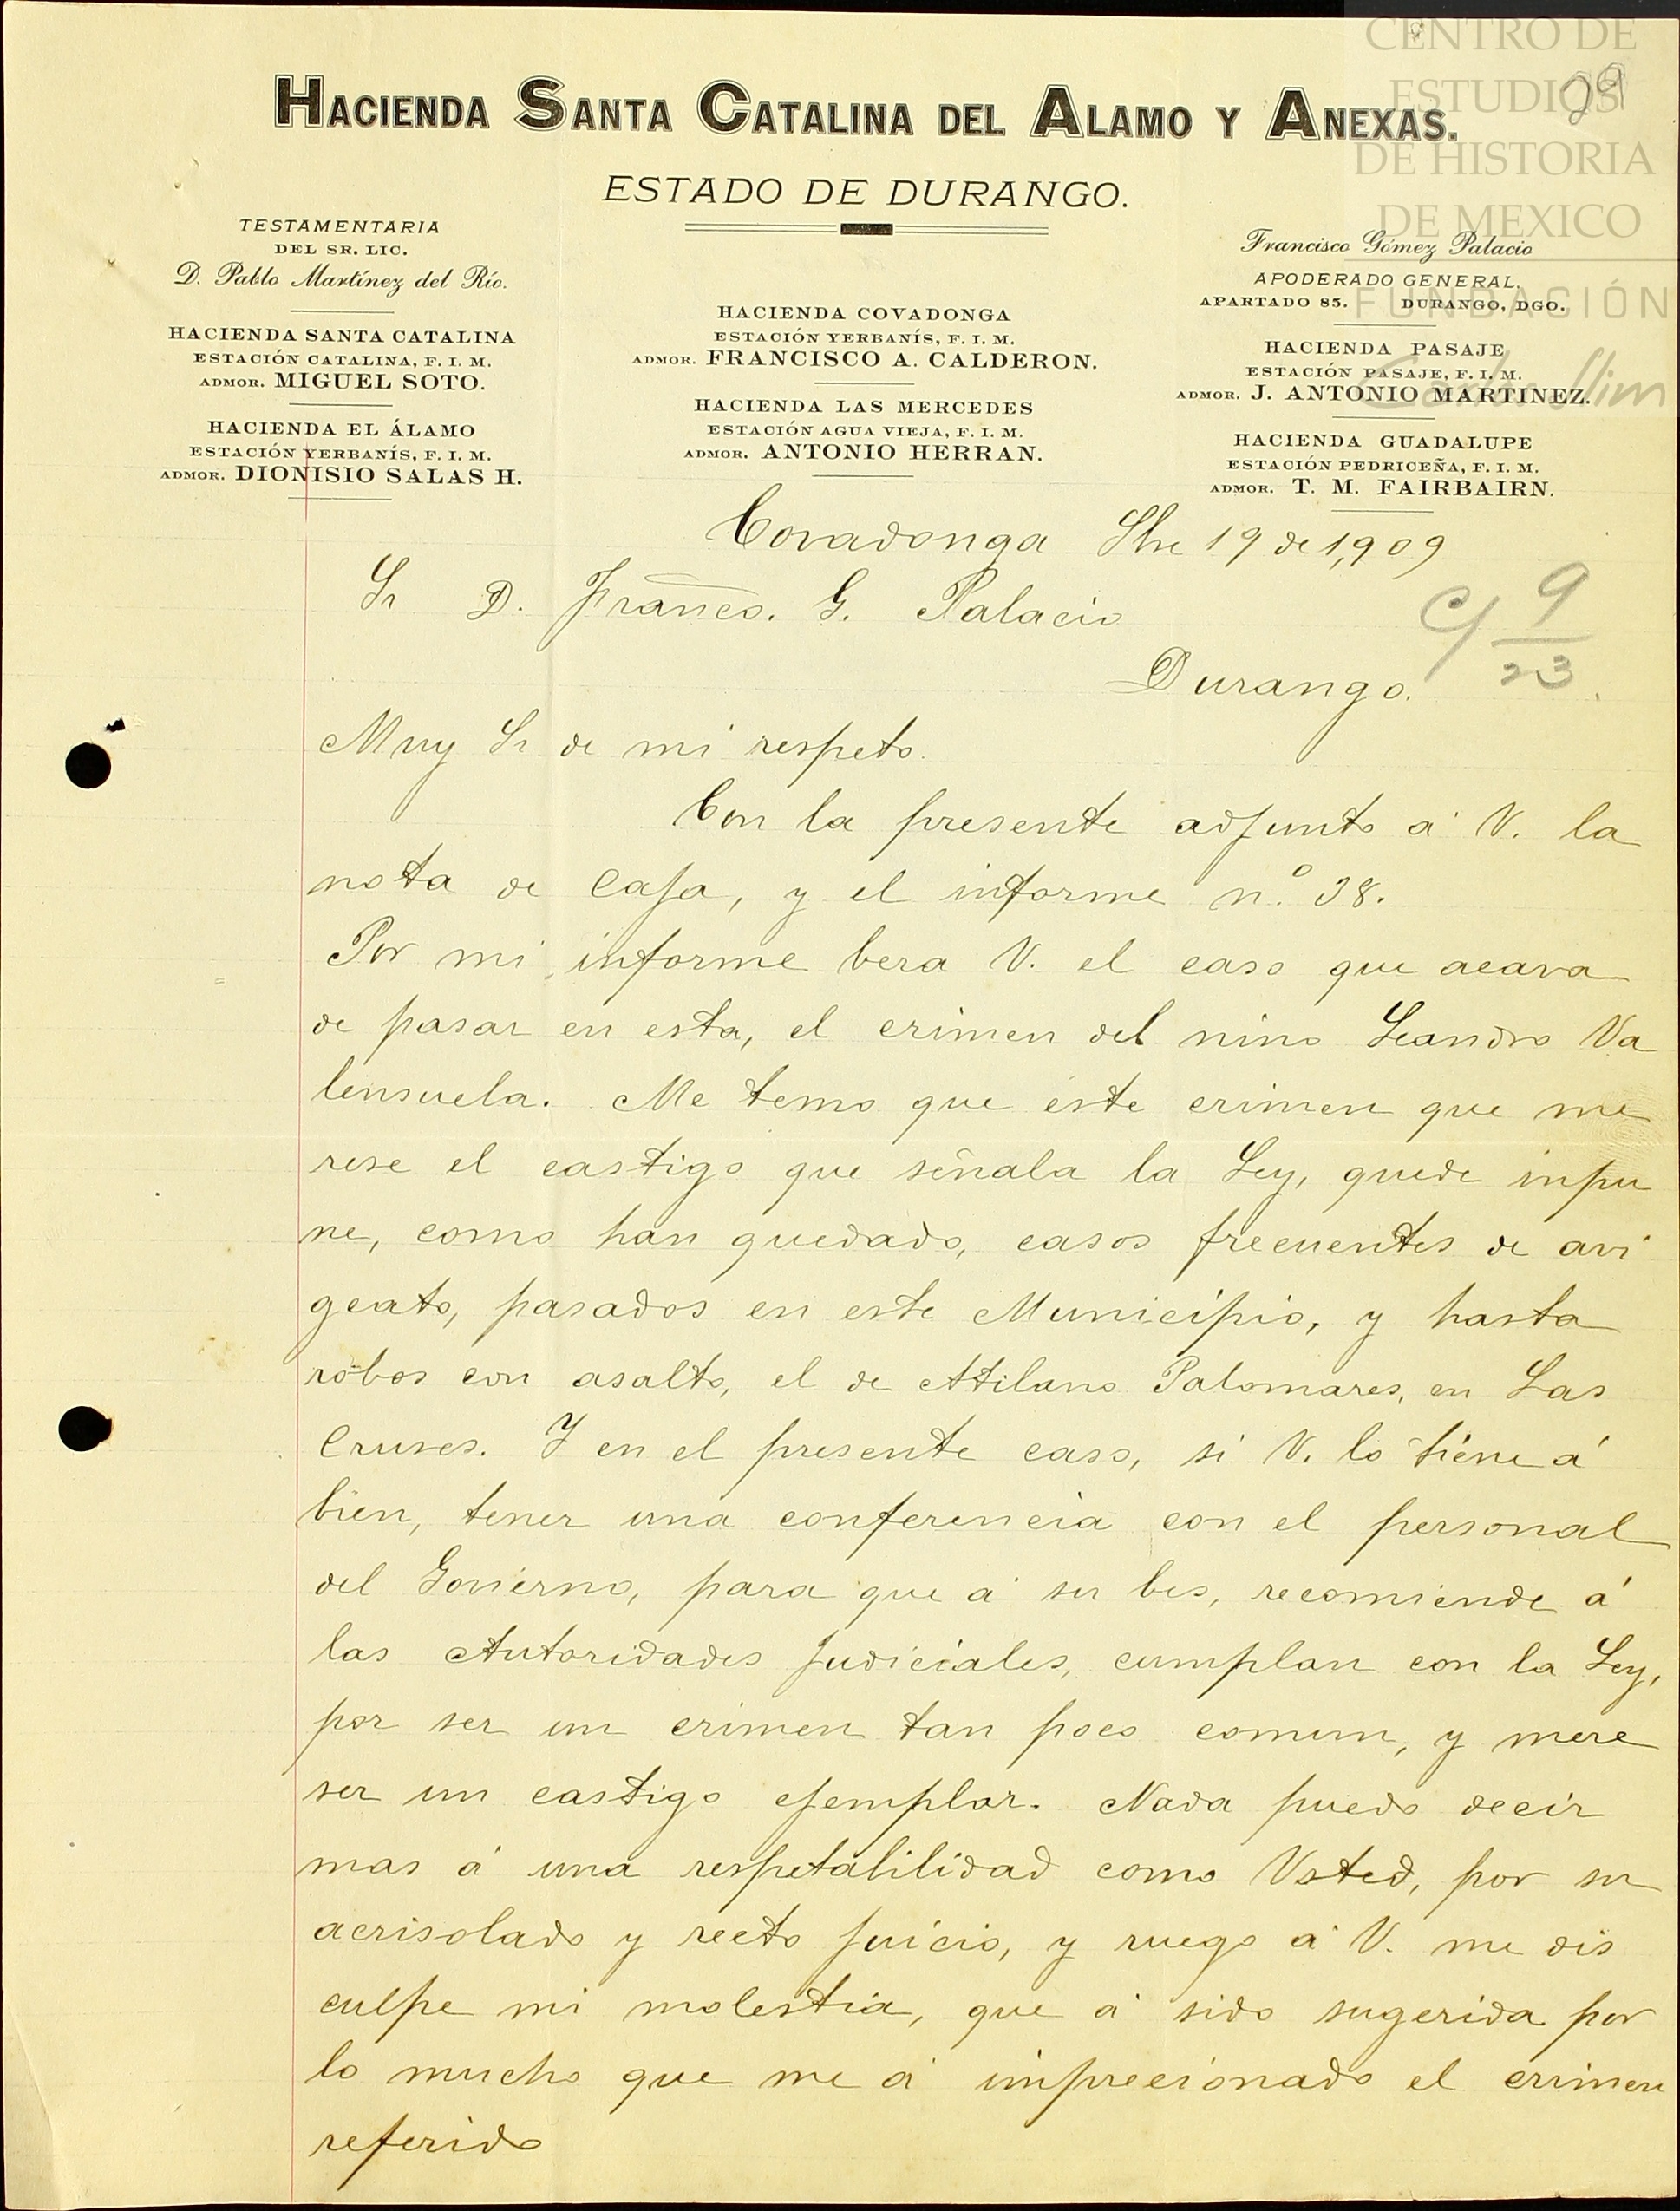 CENTRO DE
ESTUDIOS
DE HISTORIA
DE MEXICO
FUNDACIÓN
Carlos Slim
29
HACIENDA SANTA CATALINA DEL ALAMO Y ANEXAS.
ESTADO DE DURANGO.
TESTAMENTARIA
DEL SR. LIC.
D. Pablo Martínez del Río.
HACIENDA SANTA CATALINA
ESTACIÓN CATALINA, F. I. M.
ADMOR. MIGUEL SOTO.
HACIENDA EL ÁLAMO
ESTACIÓN YERBANÍS, F. I. M.
ADMOR. DIONISIO SALAS H.
HACIENDA COVADONGA
ESTACIÓN YERBANÍS, F. I. M.
ADMOR. FRANCISCO A. CALDERON.
HACIENDA LAS MERCEDES
ESTACIÓN AGUA VIEJA, F. I. M.
ADMOR. ANTONIO HERRAN.
Francisco Gómez Palacio
APODERADO GENERAL.
APARTADO 85. DURANGO, DGO.
HACIENDA PASAJE
ESTACIÓN PASAJE, F. I. M.
ADMOR. J. ANTONIO MARTINEZ.
HACIENDA GUADALUPE
ESTACIÓN PEDRICEÑA, F. I. M.
ADMOR. T. M. FAIRBAIRN.
Covadonga Sbre 19 de 1,909
Sr D. Franco. G. Palacio
C/ 9/23
Durango.
Muy Sr de mi respeto.
Con la presente adjunto á V. la
nota de Caja, y el informe n.º 38.
Por mi informe bera V. el caso que acava
de pasar en esta, el crimen del nino Leandro Va
lensuela. Me temo que éste crimen que me
rese el castigo que señala la Ley, quede inpu
ne, como han quedado, casos frecuentes de avi
geato, pasados en este Municipio, y hasta
robos con asalto, el de Atilano Palomares, en Las
Cruses. Y en el presente caso, si V. lo tiene á
bien, tener una conferencia con el personal
del Govierno, para que á su bes, recomiende á
las Autoridades Judiciales, cumplan con la Ley,
por ser un crimen tan poco comun, y mere
ser un castigo ejemplar. Nada puedo decir
mas á una respetabilidad como Usted, por su
acrisolado y recto juicio, y ruego á V. me dis
culpe mi molestia, que á sido sugerida por
lo mucho que me á imprecionado el crimen
referido